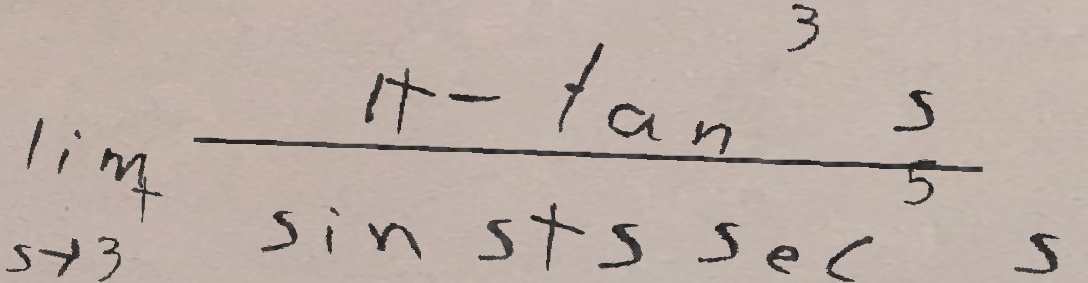 lim s→3⁺ (1+ − tan³ s) / (sin s + s sec⁵ s)